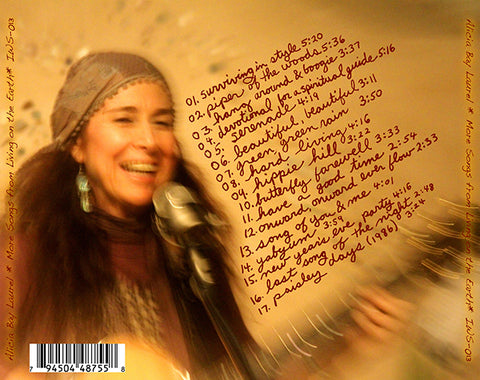 Alicia Bay Laurel * More Songs from Living on the Earth * IWS-013
01. surviving in style 5:20
02. piper of the woods 5:36
03. hang around & boogie 3:37
04. devotional for a spiritual guide 5:16
05. serenade 4:19
06. beautiful, beautiful 3:11
07. green, green rain 3:50
08. hard living 4:16
09. hippie hill 3:22
10. butterfly farewell 3:33
11. have a good time 2:54
12. onward, onward ever flow 2:33
13. song of you & me 4:01
14. yabyum 3:59
15. new year's eve party 4:16
16. last song of the night 4:48
17. paisley days (1986) 3:24
Alicia Bay Laurel * More Songs from Living on the Earth * IWS-013
7 94504 48755 8